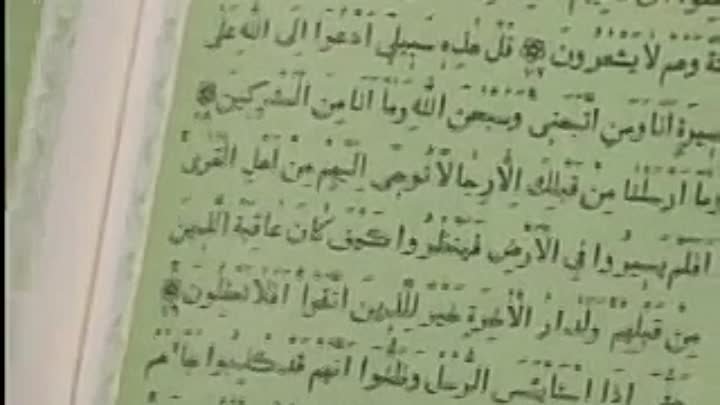 وَهُمْ لَا يَشْعُرُونَ ۝ قُلْ هٰذِهِ سَبِيلِي أَدْعُوا إِلَى اللّٰهِ عَلَى
بَصِيرَةٍ أَنَا وَمَنِ اتَّبَعَنِي وَسُبْحٰنَ اللّٰهِ وَمَا أَنَا مِنَ الْمُشْرِكِينَ ۝١٠٨
وَمَا أَرْسَلْنَا مِنْ قَبْلِكَ إِلَّا رِجَالًا نُوحِي إِلَيْهِمْ مِنْ أَهْلِ الْقُرَى
أَفَلَمْ يَسِيرُوا فِي الْأَرْضِ فَيَنْظُرُوا كَيْفَ كَانَ عَاقِبَةُ الَّذِينَ
مِنْ قَبْلِهِمْ وَلَدَارُ الْآخِرَةِ خَيْرٌ لِلَّذِينَ اتَّقَوْا أَفَلَا تَعْقِلُونَ ۝١٠٩
حَتَّى إِذَا اسْتَيْئَسَ الرُّسُلُ وَظَنُّوا أَنَّهُمْ قَدْ كُذِبُوا جَاءَهُمْ